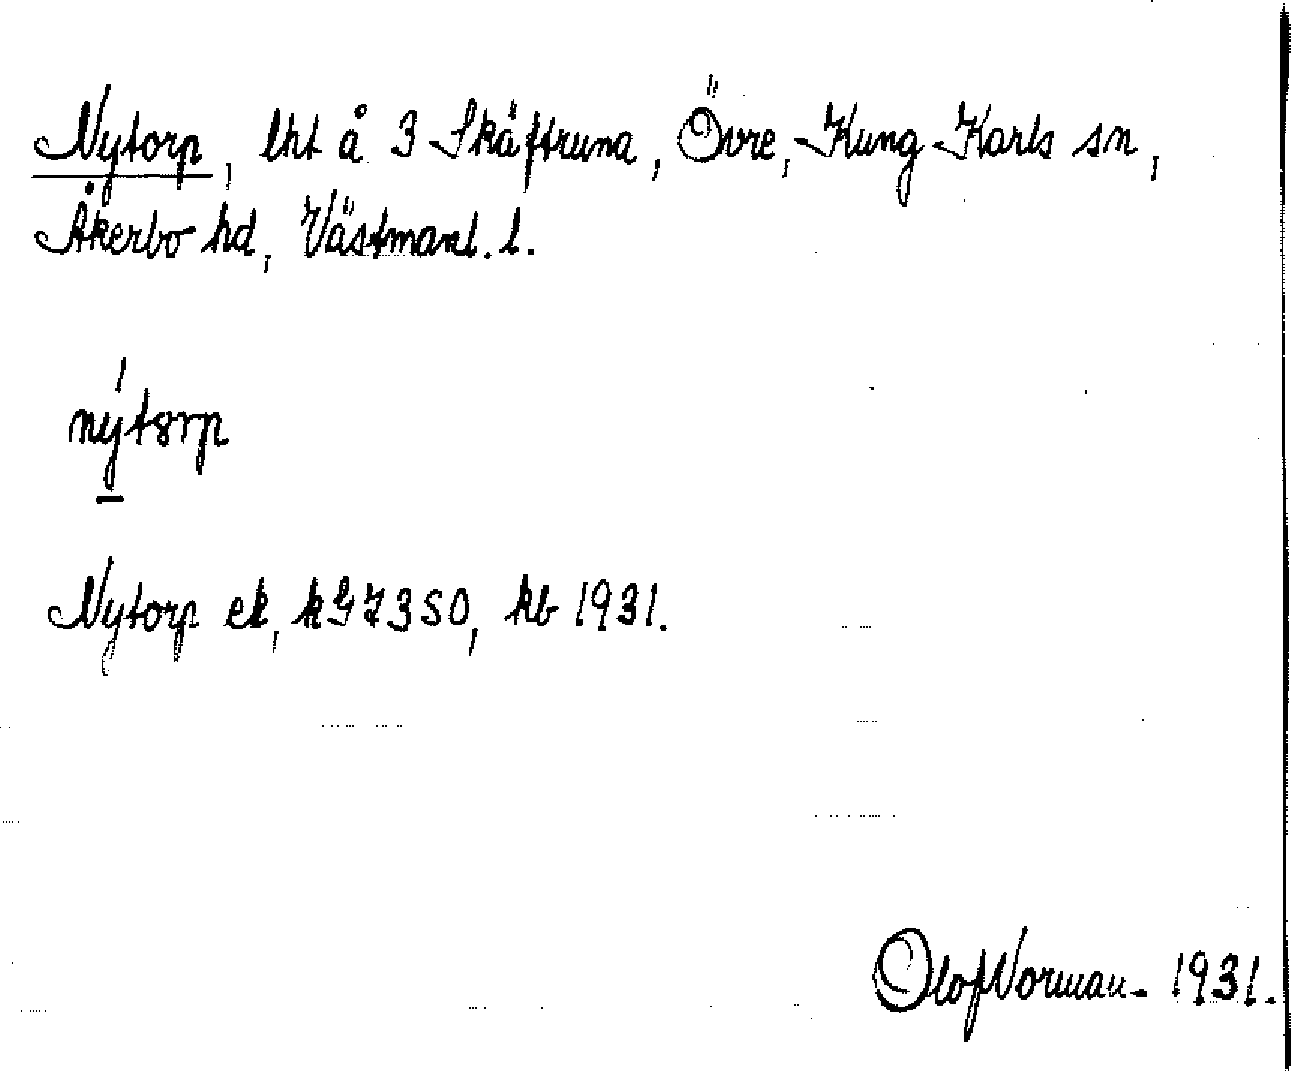 Nytorp, lht å 3 Skäftruna, Övre, Kung Karls sn,
Åkerbo hd, Västmanl. l.
nýtorp
Nytorp ek, kG7350, kb 1931.
Olof Norman - 1931.